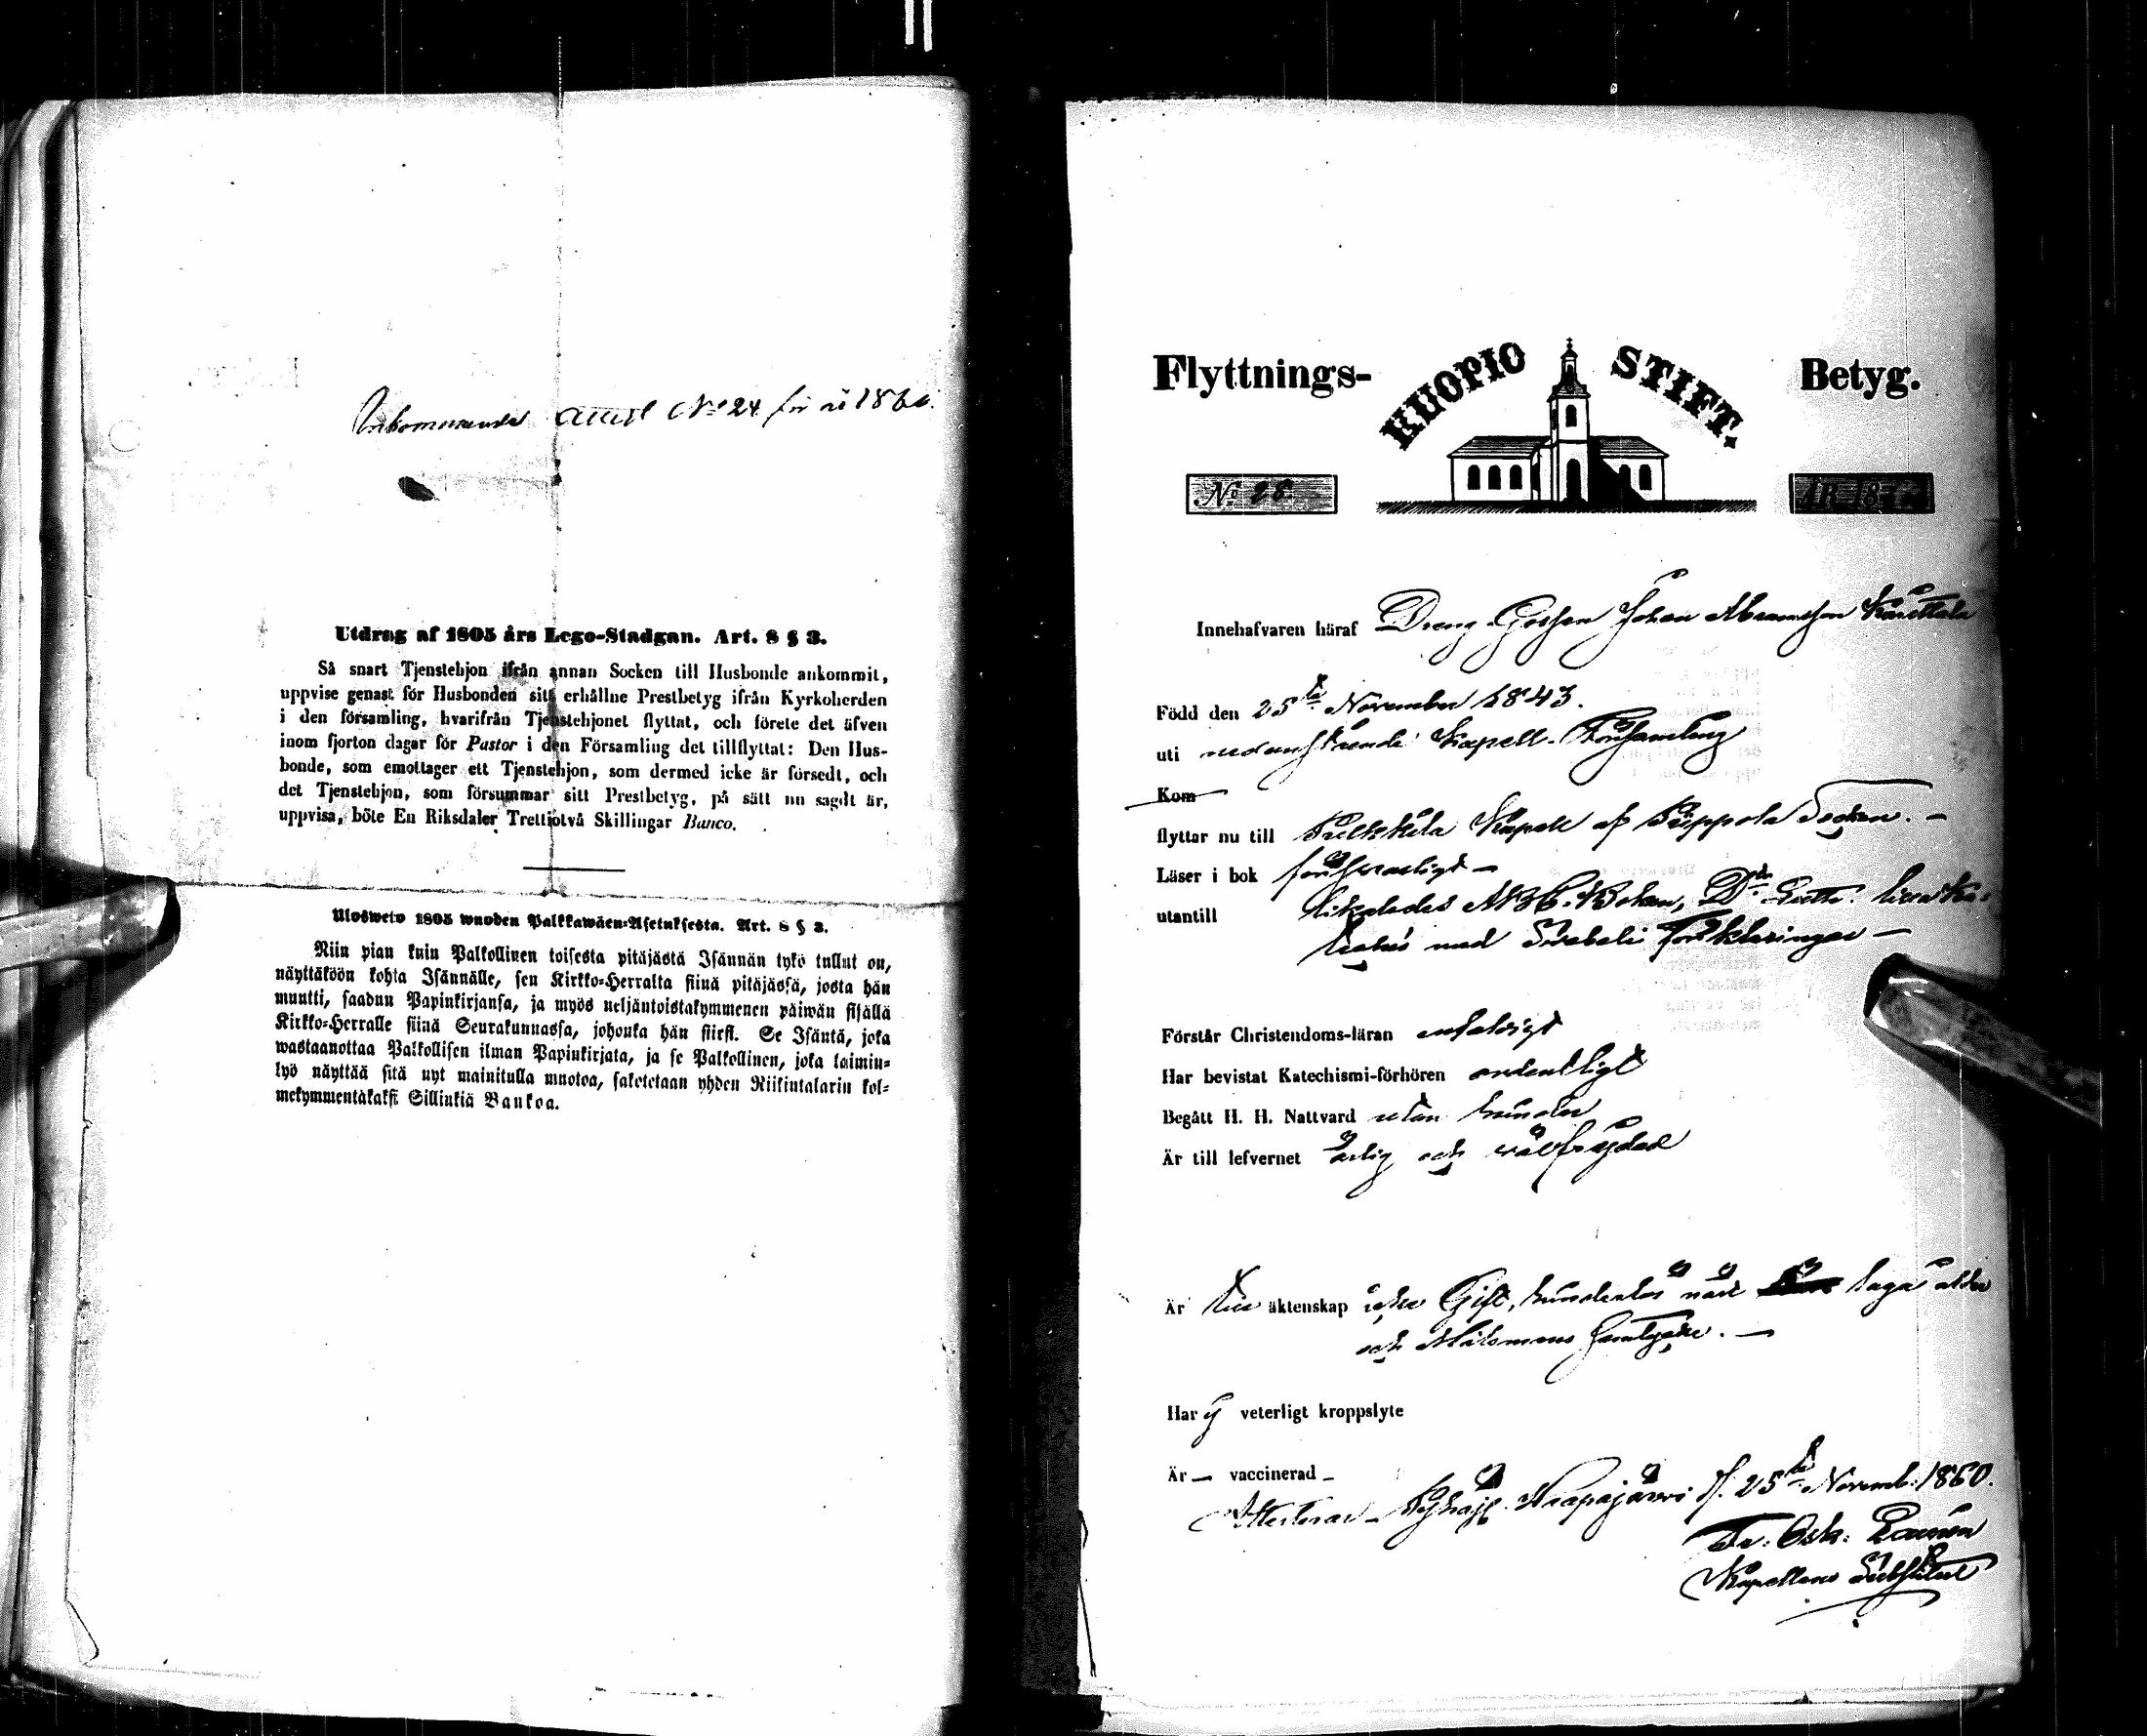 Inkommande attest No 24 för år 1860.
Utdrag af 1805 års Lego-Stadgan. Art. 8 § 3.
Så snart Tjenstehjon ifrån annan Socken till Husbonde ankommit,
uppvise genast för Husbonden sitt erhållne Prestbetyg ifrån Kyrkoherden
i den församling, hvarifrån Tjenstehjonet flyttat, och förete det äfven
inom fjorton dagar för Pastor i den Församling det tillflyttat: Den Hus-
bonde, som emottager ett Tjenstehjon, som dermed icke är försedt, och
det Tjenstehjon, som försummar sitt Prestbetyg, på sätt nu sagdt är,
uppvisa, böte En Riksdaler Trettiotvå Skillingar Banco.
Ulosweto 1805 wuoden Palkkawäen-Asetuksesta. Art. 8 § 3.
Niin pian kuin Palkollinen toisesta pitäjästä Isännän tykö tullut on,
näyttäköön kohta Isännälle, sen Kirkko-Herralta siinä pitäjässä, josta hän
muutti, saadun Papinkirjansa, ja myös neljäntoistakymmenen päiwän sisällä
Kirkko-Herralle siinä Seurakunnassa, johonka hän siirsi. Se Isäntä, joka
wastaanottaa Palkollisen ilman Papinkirjata, ja se Palkollinen, joka laimin-
lyö näyttää sitä nyt mainitulla muotoa, saketetaan yhden Riikintalarin kol-
mekymmentäkaksi Sillinkiä Bankoa.
Flyttnings- KUOPIO STIFT. Betyg.
No 28. ÅR 18
Innehafvaren häraf Dreng Gossen Johan Abramsson
Född den 25te November 1843.
uti nedanskrende Kapell-Församling
Kom
flyttar nu till Kapell af Piippola Socken. -
Läser i bok försvarligt -
utantill likaledes AB C. Boken, Dr
med Svebeli Förklaringar -
Förstår Christendoms-läran enfaldigt
Har bevistat Katechismi-förhören ordentligt
Begått H. H. Nattvard utan hinder
Är till lefvernet ärlig och välfrejdad
Är till äktenskap icke Gift, hinderlös när laga ålder
och Målsmans samtycke. -
Har ej veterligt kroppslyte
Är - vaccinerad -
Attesterar - Pyhäj. Haapajärvi d. 25te Novemb. 1860.
Fr: Osk:
Kapellans Substitut